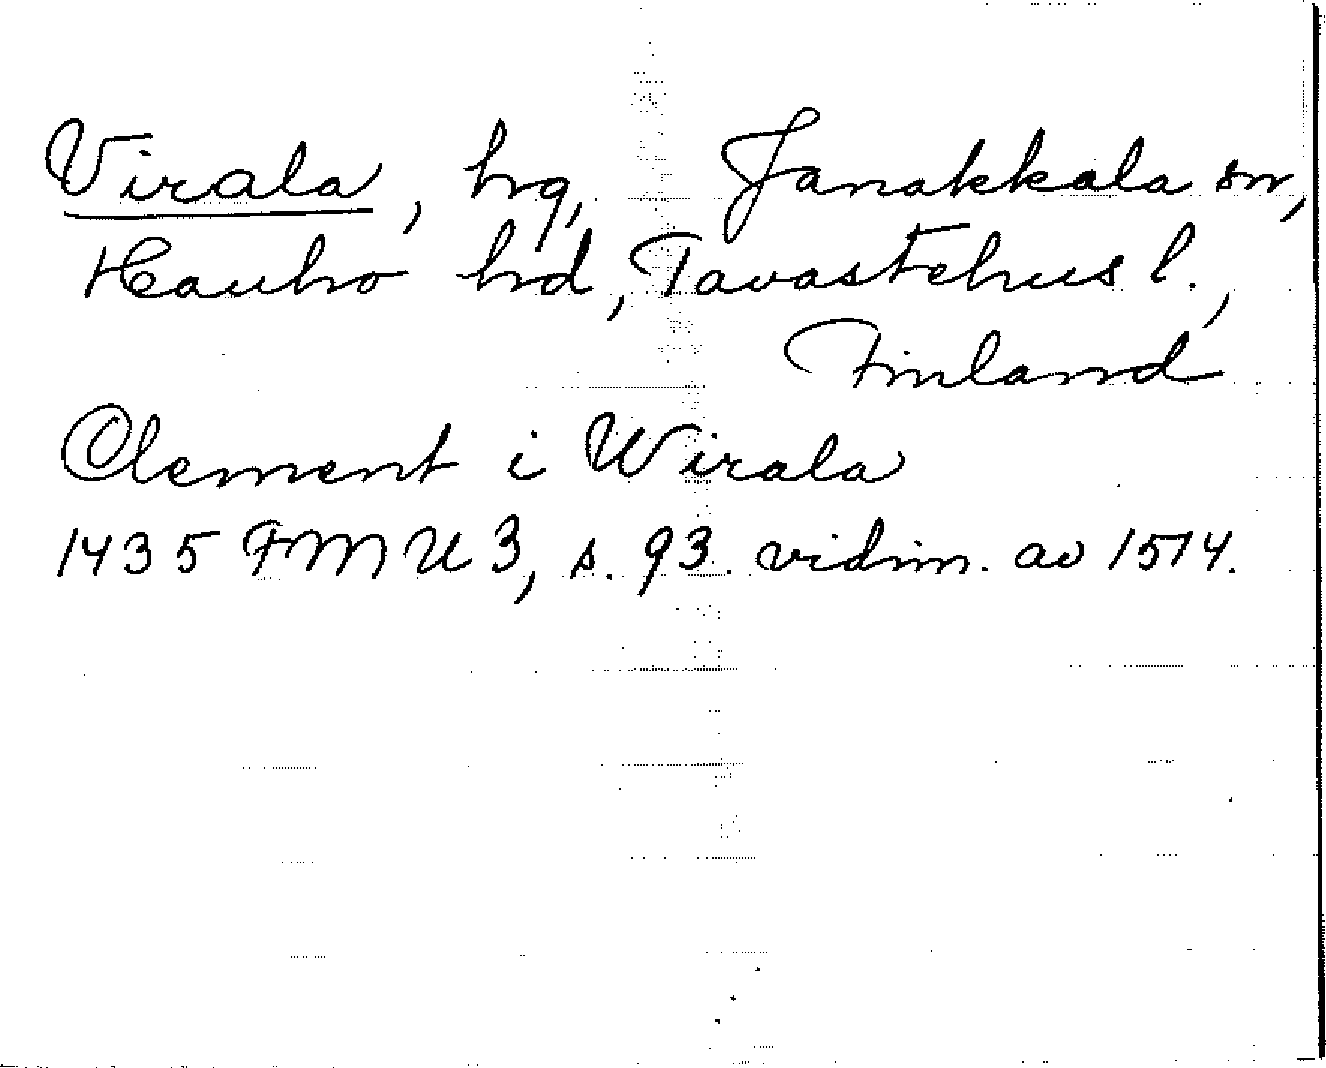 Virala, hrg, Janakkala sn,
Hauho hrd, Tavastehus l.,
Finland
Clement i Wirala
1435 FMU 3, s. 93. vidim. av 1514.